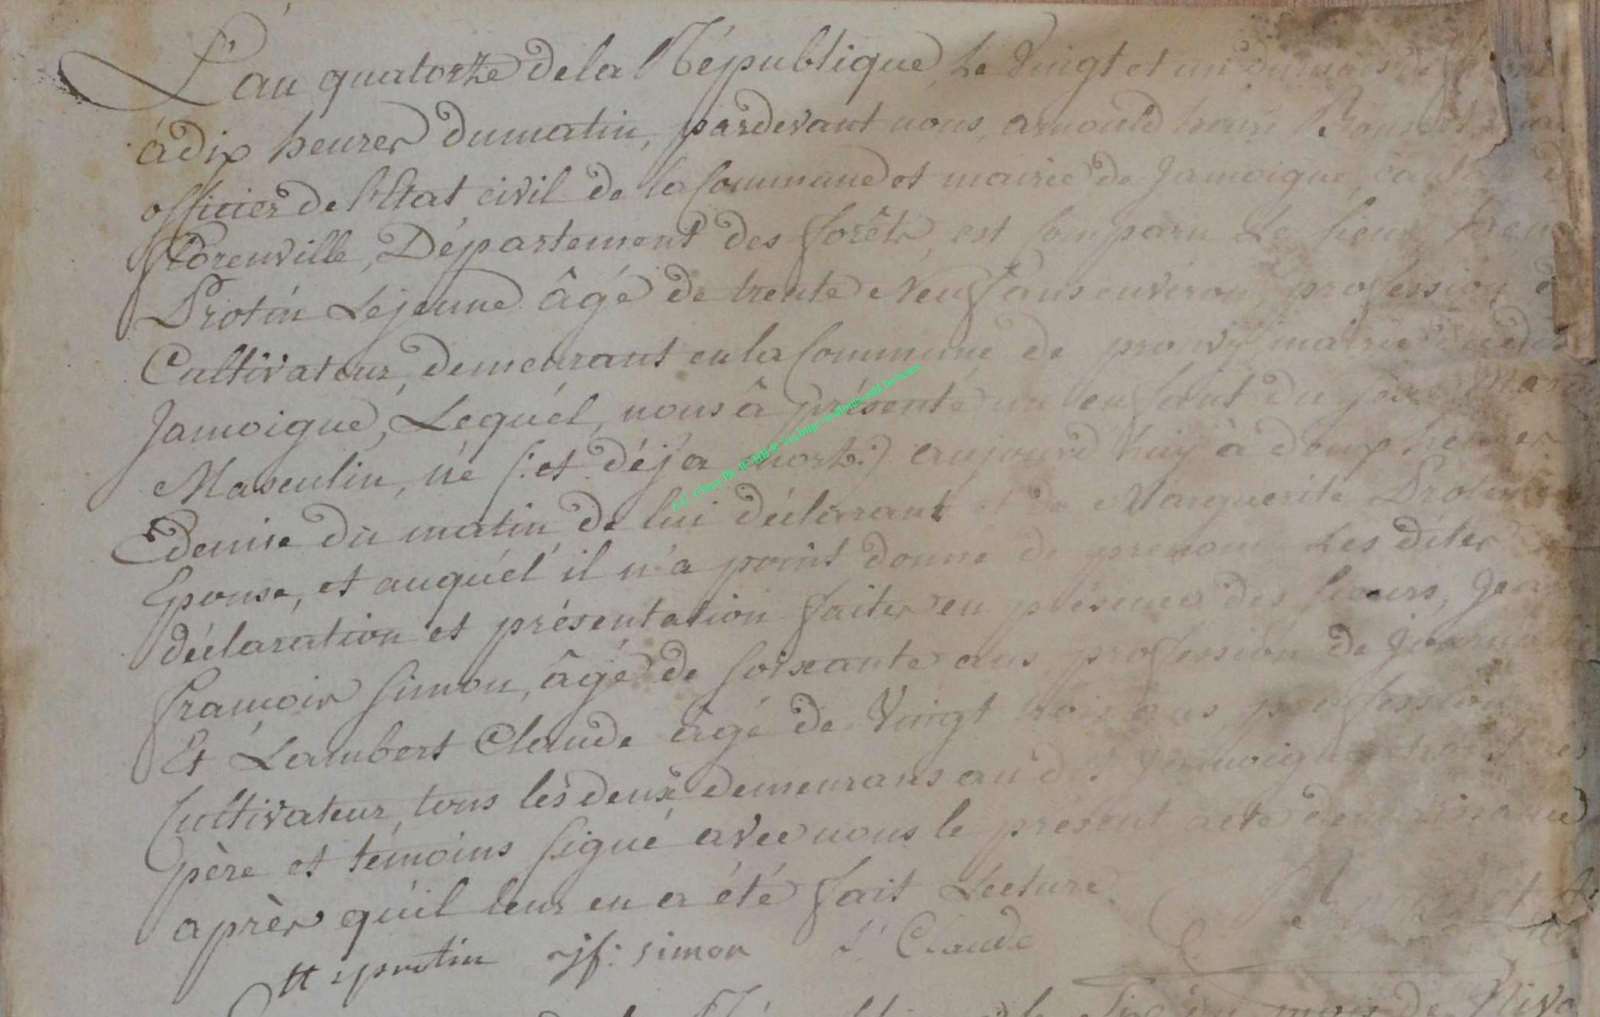 L'an quatorze de la République le Vingt et un du mois de
à dix heures du matin, pardevant nous, arnould henri
officier de l'Etat civil de la Commune et mairie de Jamoigne,
florenville, Département des forêts est Comparu Le sieur henri
Protin Lejeune âgé de trente Neuf ans environ, profession de
Cultivateur, demeurant en la Commune de prouvy mairie du dit
Jamoigne, Lequél, nous â présenté un enfant du sexe
Masculin, né (: et déja mort:) aujourd'huy à deux heures
Edemie du matin de lui déclarant et de Marguerite Protin
Epouse, et auquél il n'a point donné de prenom Les dites
déclaration et présentation faites en présence des sieurs, Jean
francois Simon, âgé de soixante ans profession de journalier
Et Lambert Claude âgé de Vingt trois ans profession
Cultivateur, tous les deux demeurans au dit Jamoigne
père et témoins signé avec nous le présent acte de naissance
après qu'il leur en a été fait Lecture
H protin jf: simon L' Claude
mois de Nivo